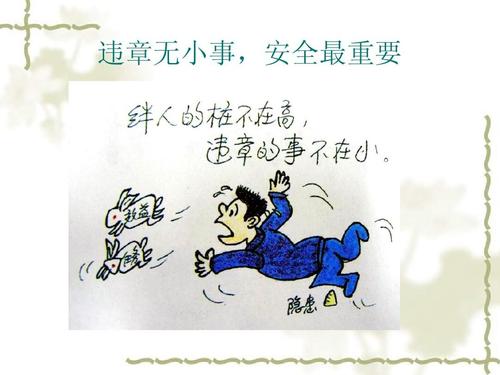 违章无小事，安全最重要
绊人的桩不在高，
违章的事不在小。
效益
隐患